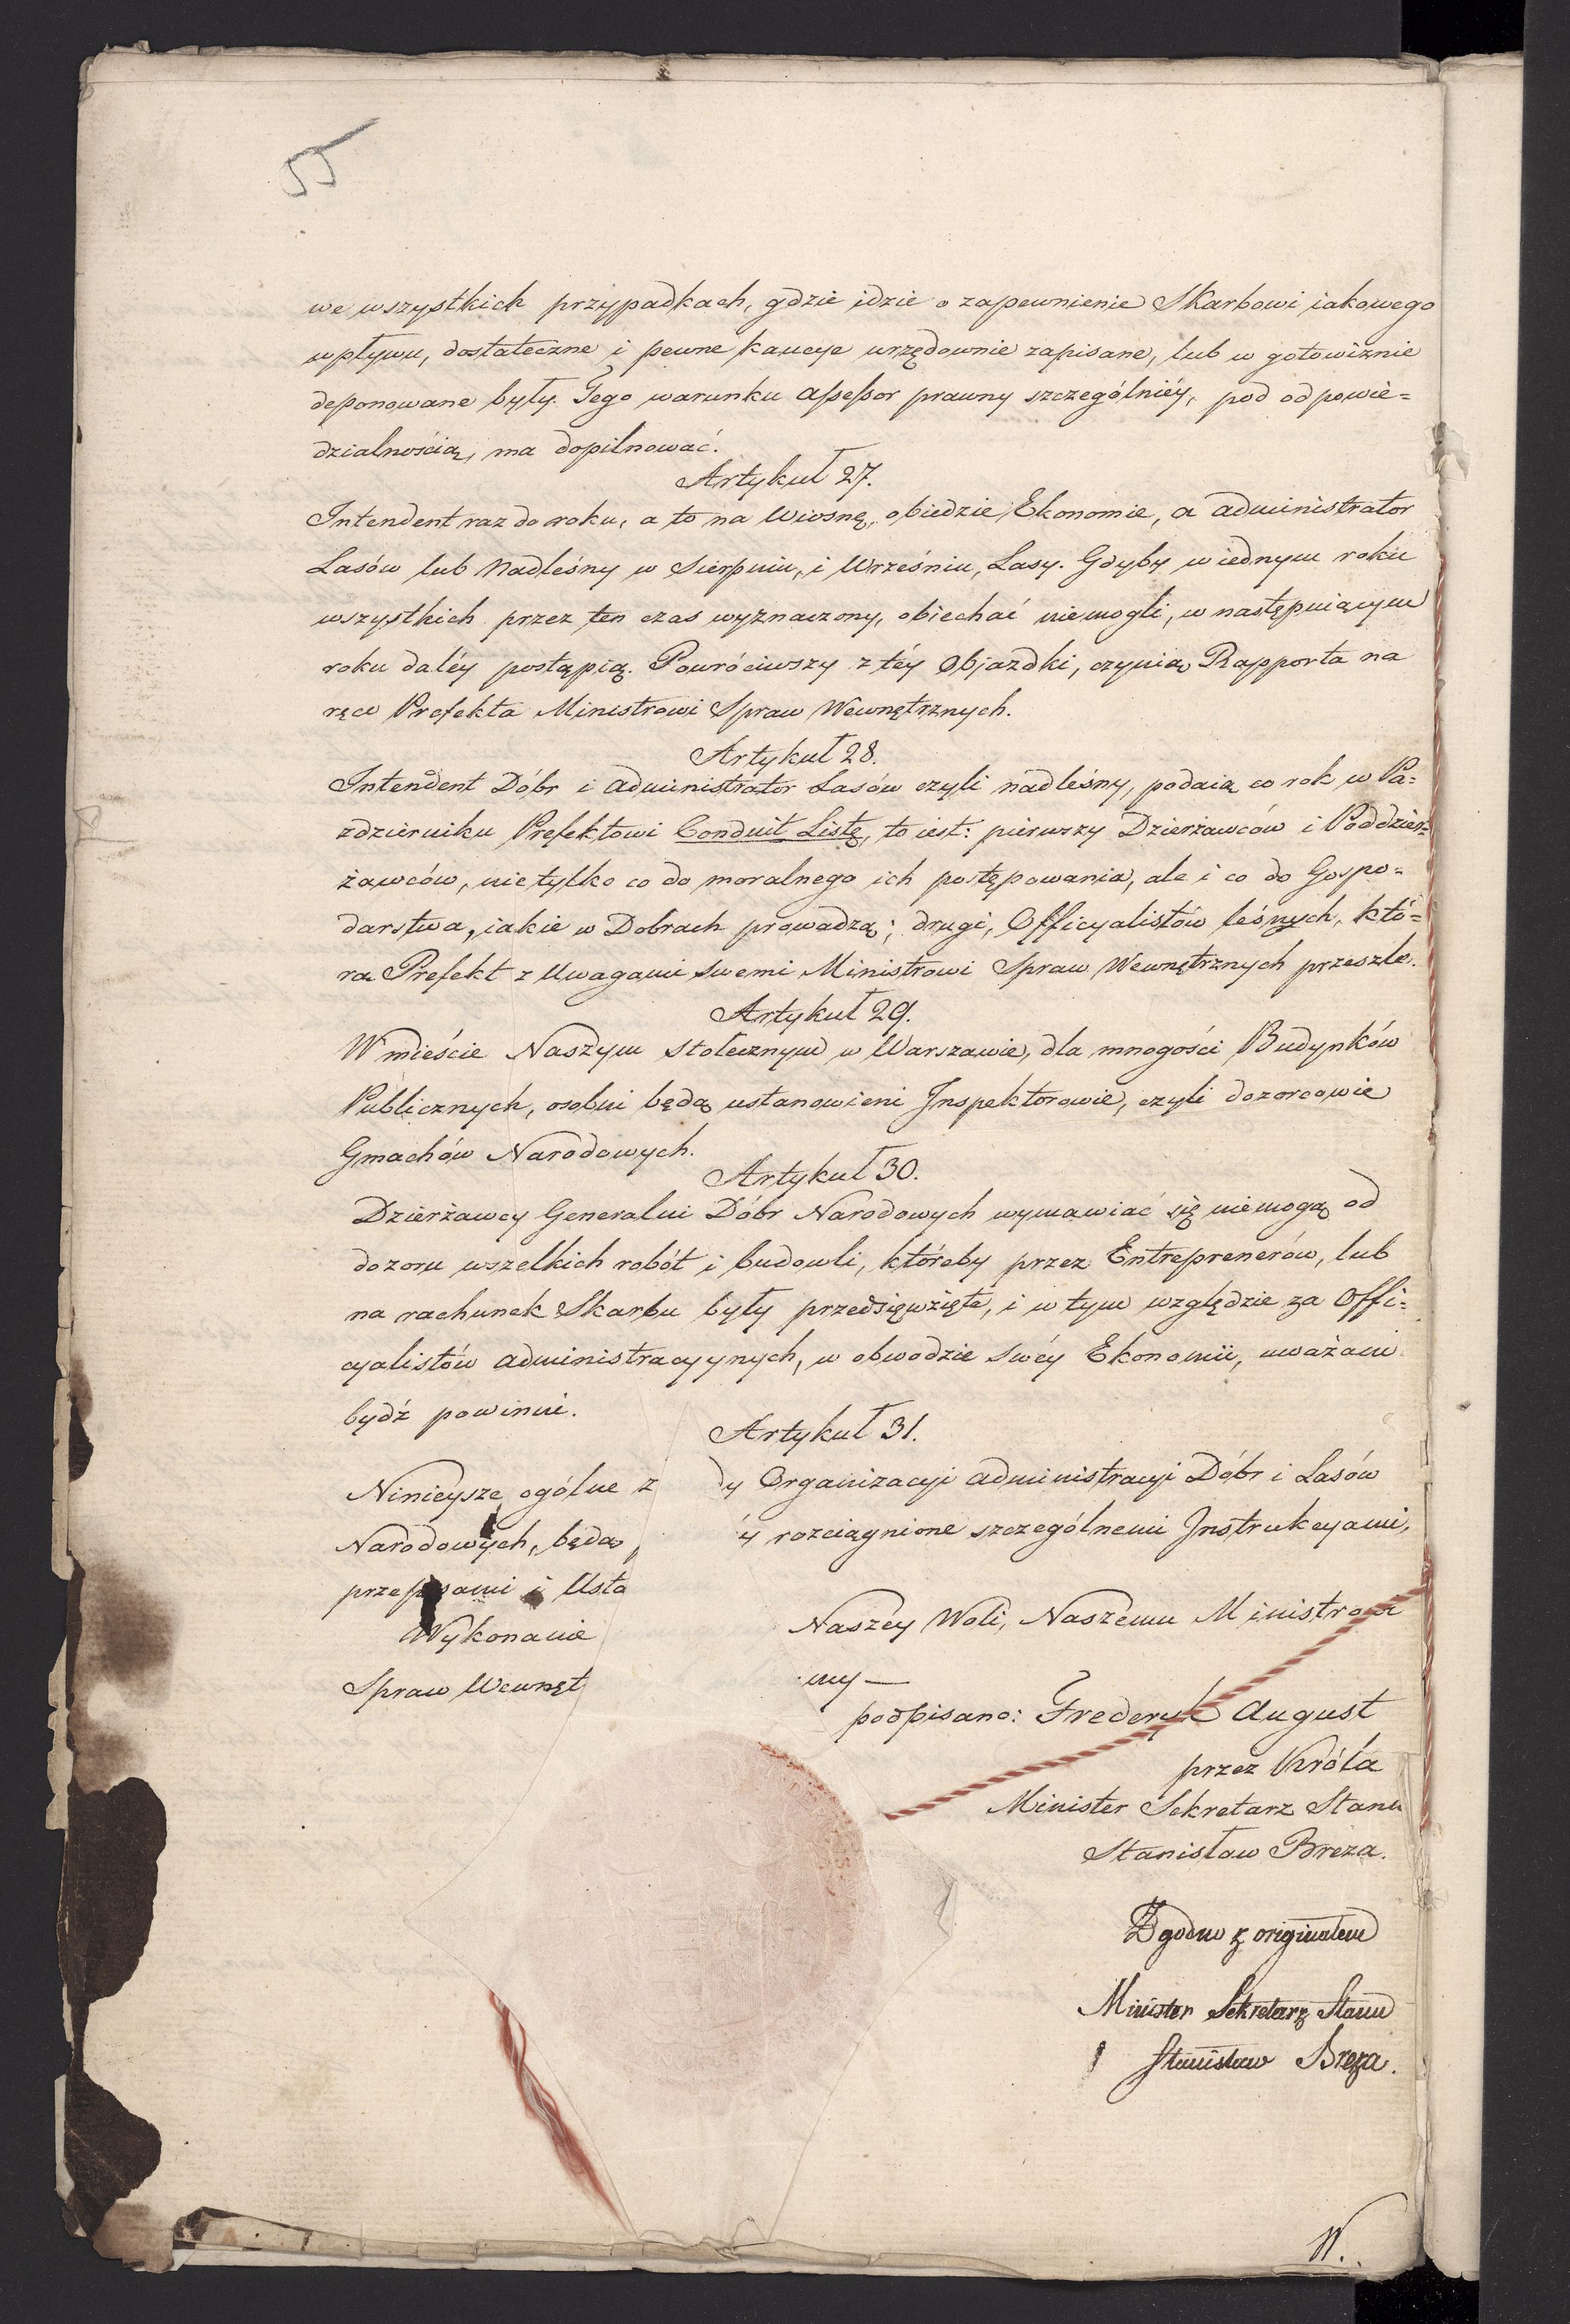 55
we wszystkich przypadkach, gdzie idzie o zapewnienie Skarbowi iakowego
wpływu, dostateczne i pewne kaucye urzędownie zapisane, lub w gotowiznie
deponowane były. Tego warunku Assessor prawny szczególniéy, pod odpowie=
dzialnością, ma dopilnować.
Artykuł 27.
Intendent raz do roku, a to na Wiosnę, obiedzie Ekonomie, a administrator
Lasów lub Nadleśny w Sierpniu, i Wrześniu, Lasy. Gdyby w iednym roku
wszystkich przez ten czas wyznaczony, obiechać niemogli, w następuiącym
roku daléy postąpią. Powróciwszy z téy Objazdki, czynią Rapporta na
ręce Prefekta Ministrowi Spraw Wewnętrznych.
Artykuł 28.
Intendent Dóbr i administrator Lasów czyli nadleśny, podaią co rok w Pa=
zdzierniku Prefektowi Conduit Listę, to iest: pierwszy Dzierżawców i Poddzier=
żawców, nie tylko co do moralnego ich postępowania, ale i co do Gospo=
darstwa, iakie w Dobrach prowadzą; drugi, Officyalistów leśnych, któ=
rą Prefekt z Uwagami swemi Ministrowi Spraw Wewnętrznych przeszle.
Artykuł 29.
W mieście Naszym stołecznym w Warszawie, dla mnogości Budynków
Publicznych, osobni będą ustanowieni Inspektorowie, czyli dozorcowie
Gmachów Narodowych.
Artykuł 30.
Dzierżawcy Generalni Dóbr Narodowych wymawiać się niemogą od
dozoru wszelkich robót i budowli, któreby przez Entreprenerów, lub
na rachunek Skarbu były przedsięwzięte, i w tym względzie za Offi=
cyalistów administracyynych, w obwodzie swéy Ekonomii, uważani
bydź powinni.
Artykuł 31.
Ninieysze ogólne z dy Organizacyi administracyi Dóbr i Lasów
Narodowych, będą y rozciągnione szczególnemi Instrukcyami,
przepisami i Usta
Wykonanie Naszéy Woli, Naszemu Ministrowi
Spraw Wewnęt my —
podpisano: Frederyk August
przez Króla
Minister Sekretarz Stanu
Stanisław Breza.
Zgodno z originałem
Minister Sekretarz Stanu
Stanisław Breza.
W.